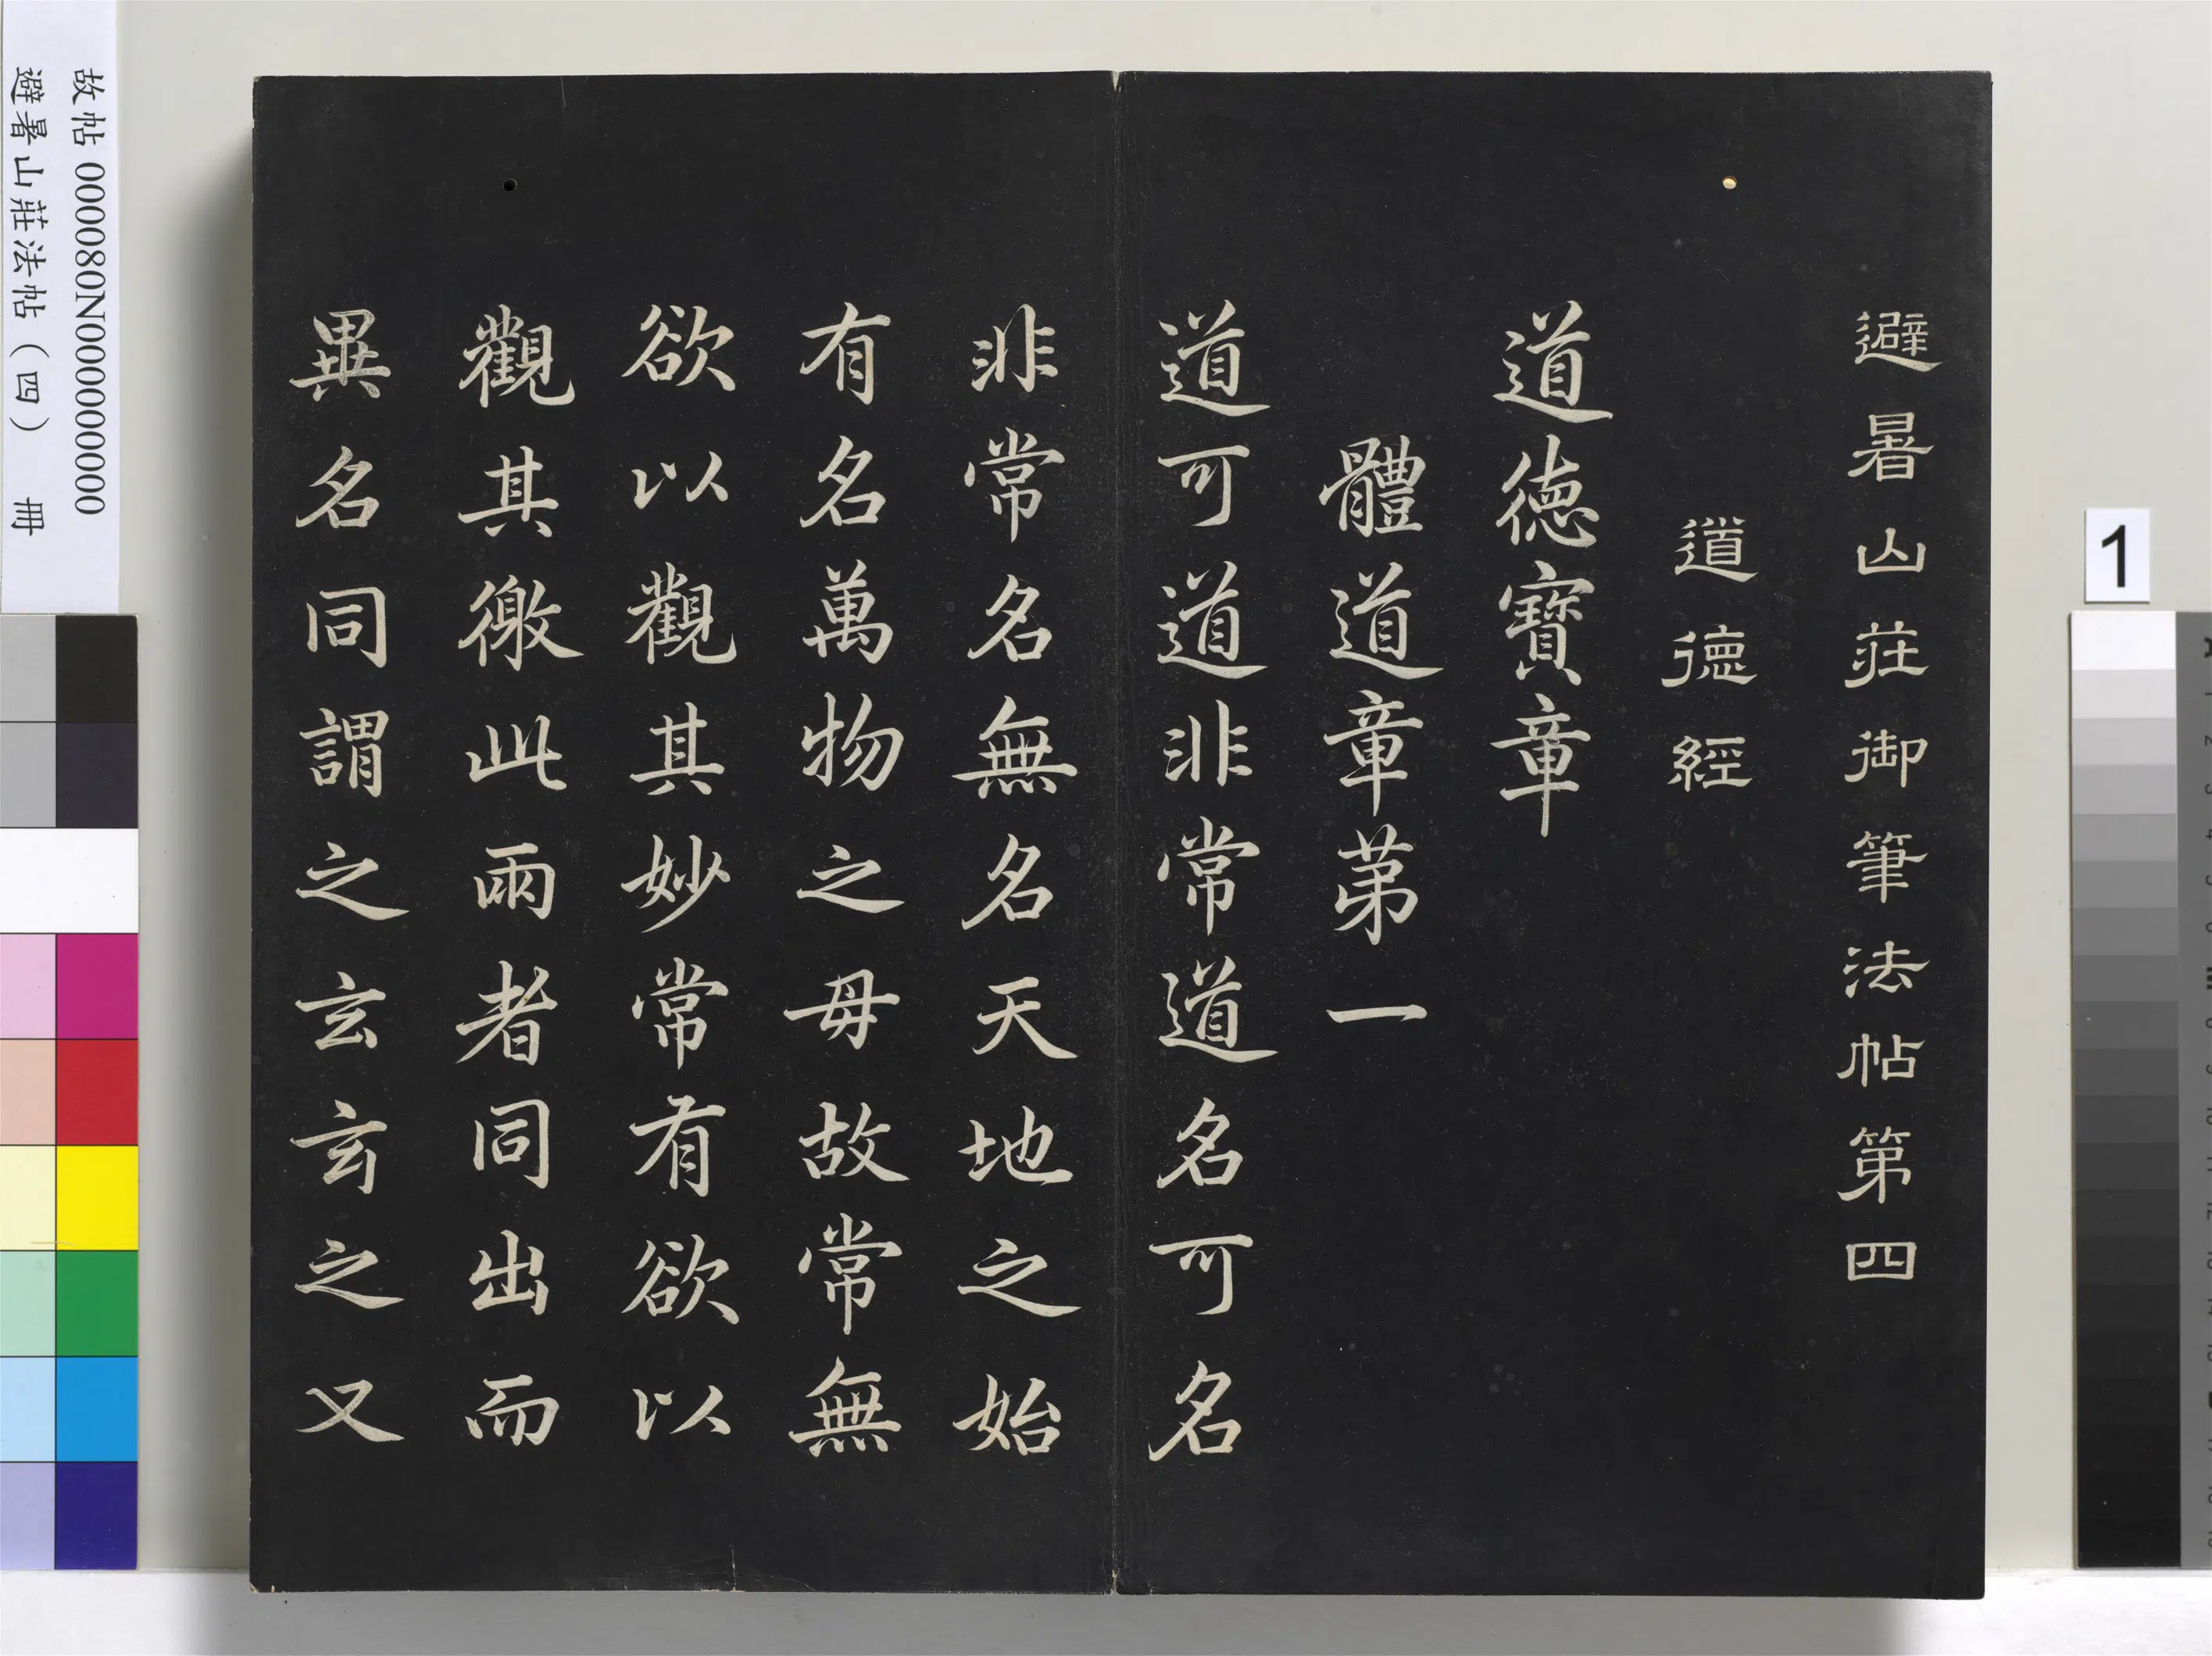 避暑山莊御筆法帖第四
道德經
道德寶章
體道章第一
道可道非常道名可名
非常名無名天地之始
有名萬物之母故常無
欲以觀其妙常有欲以
觀其徼此兩者同出而
異名同謂之玄玄之又
故帖 000080N000000000
避暑山莊法帖（四） 冊
1